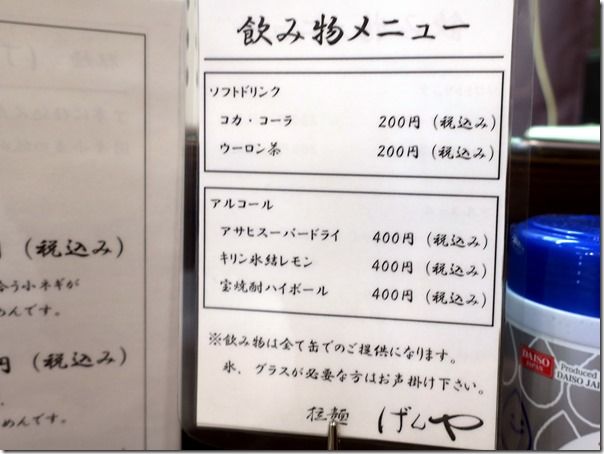 飲み物メニュー
ソフトドリンク
コカ・コーラ 200円（税込み）
ウーロン茶 200円（税込み）
アルコール
アサヒスーパードライ 400円（税込み）
キリン氷結レモン 400円（税込み）
宝焼酎ハイボール 400円（税込み）
※飲み物は全て缶でのご提供になります。
氷、グラスが必要な方はお声掛け下さい。
拉麺 げんや
円（税込み）
合う小ネギが
めんです。
円（税込み）
めんです。
DAISO
JAPAN
Produced
DAISO JA